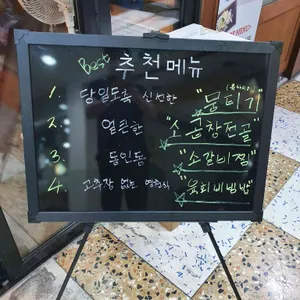 Best 추천메뉴
1. 당일도축 신선한 "뭉티기"
2. 얼큰한 "소곱창전골"
3. 동인동 "소갈비찜"
4. 고추장 없는 "육회비빔밥"